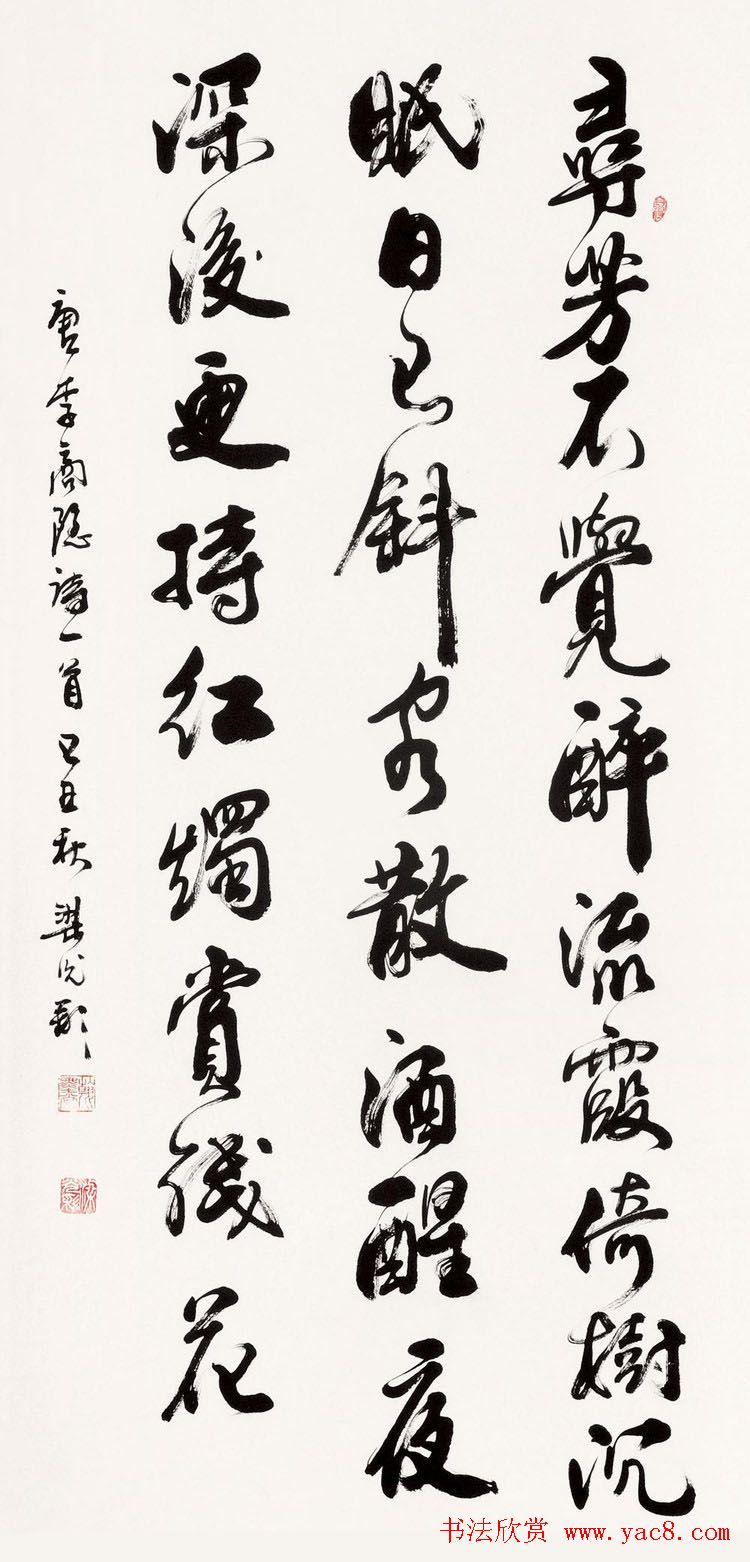 尋芳不覺醉流霞倚樹沉
眠日已斜客散酒醒夜
深後更持紅燭賞殘花
唐李商隱詩一首己丑秋
书法欣赏 www.yac8.com